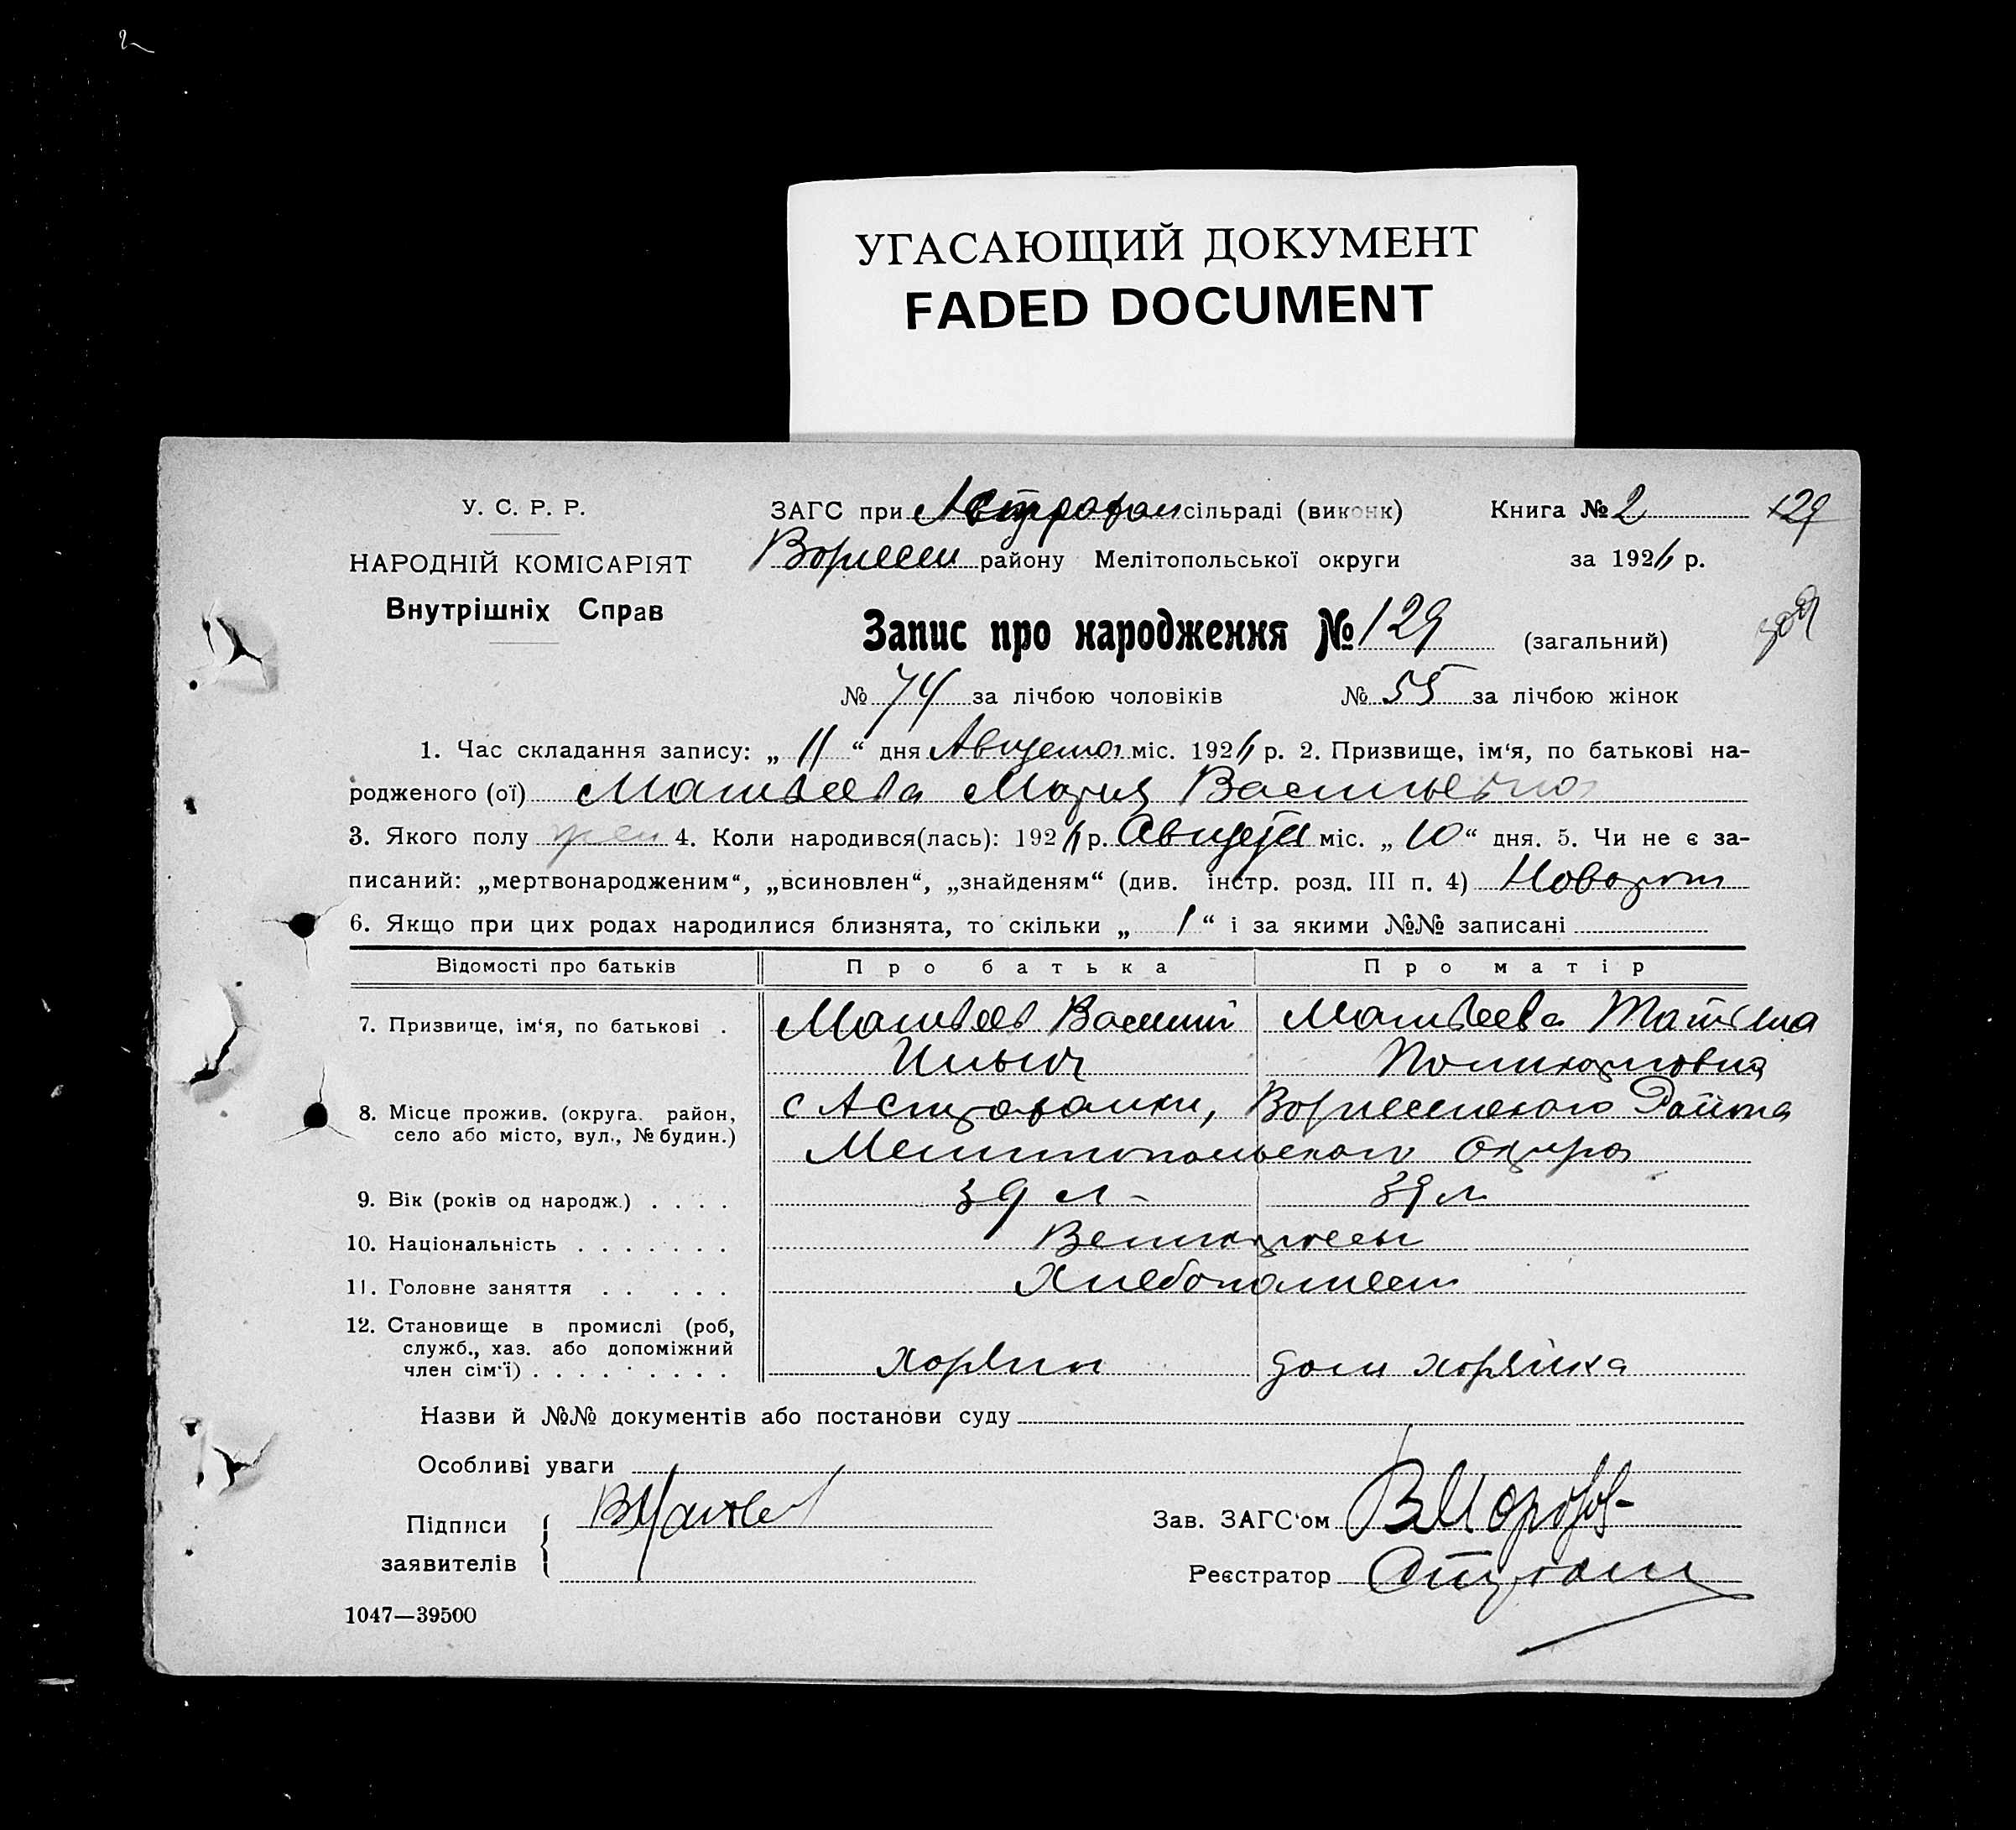 УГАСАЮЩИЙ ДОКУМЕНТ
FADED DOCUMENT
У. С. Р. Р.
НАРОДНІЙ КОМІСАРІЯТ
Внутрішніх Справ
ЗАГС при Астрахан сільраді (виконк)
району Мелітопольської округи
Книга № 2
129
за 192 р.
Запис про народження № 129 (загальний)
№ 74 за лічбою чоловіків № 55 за лічбою жінок
1. Час складання запису: „ 11 “ дня Августа міс. 192 р. 2. Призвище, ім‘я, по батькові на-
родженого (ої) Матвеева Мария Васильевна
3. Якого полу жен 4. Коли народився(лась): 192 р. Августа міс. „ 10 “ дня. 5. Чи не є за-
писаний: „мертвонародженим“, „всиновлен“, „знайденям“ (див. інстр. розд. III п. 4) Новорож
6. Якщо при цих родах народилися близнята, то скільки „ “ і за якими №№ записані
Відомості про батьків Про батька Про матір
7. Призвище, ім‘я, по батькові . Матвеев Василий Матвеева Татьяна
Ильич Поликарповна
8. Місце прожив. (округа. район,
село або місто, вул., № будин.)
с Астраханки, Вознесенского Района
Мелитопольского Округа
9. Вік (років од народж.) . . . . 39 л 39 л
10. Національність . . . . . . . Великороссы
11. Головне заняття . . . . . Хлебопашест
12. Становище в промислі (роб,
служб., хаз. або допоміжний
член сім‘ї) . . . . . . . . . хозяин дом хозяйка
Назви й №№ документів або постанови суду
Особливі уваги
Підписи
заявителів
Зав. ЗАГС‘ом В Морозов
Реєстратор
1047—39500